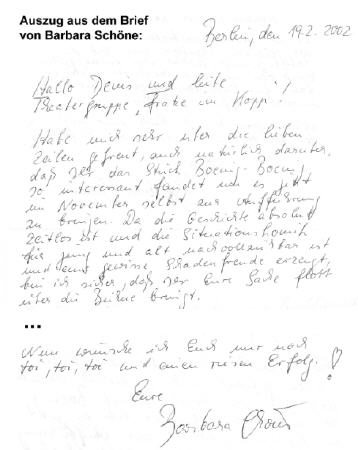 Auszug aus dem Brief
von Barbara Schöne:
Berlin, den 19.2.2002
Hallo Denis und liebe
Theatergruppe, "Fratze im Kopp"!
Habe mich sehr über die lieben
Zeilen gefreut, auch natürlich darüber,
daß Ihr das Stück Boeing-Boeing
so interessant findet um es jetzt
im November selbst zur Aufführung
zu bringen. Da die Geschichte absolut
zeitlos ist und die Situationskomik
für jung und alt nachvollziehbar ist
und eine gewisse Schadenfreude erzeugt,
bin ich sicher, daß Ihr Eure Sache flott
über die Bühne bringt.
...
Nun wünsche ich Euch nur noch
toi, toi, toi und einen riesen Erfolg!
Eure
Barbara Schöne